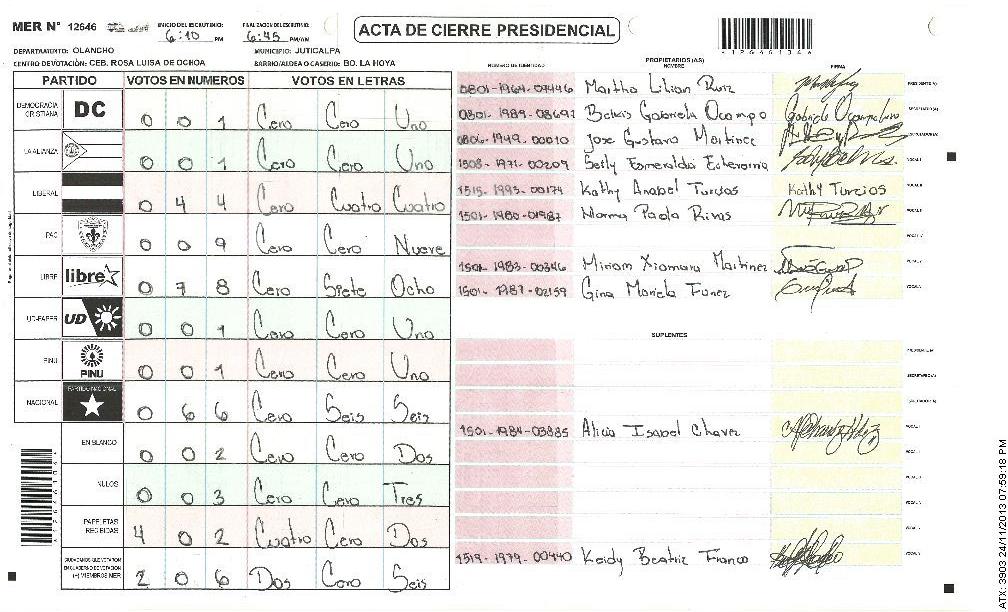 MER N° 12646
INICIO DEL ESCRUTINIO: 6:10 PM
FINALIZACION DEL ESCRUTINIO: 6:45 PM/AM
ACTA DE CIERRE PRESIDENCIAL
DEPARTAMENTO: OLANCHO
MUNICIPIO: JUTICALPA
CENTRO DE VOTACIÓN: CEB. ROSA LUISA DE OCHOA
BARRIO/ALDEA O CASERIE: BO. LA HOYA
PARTIDO VOTOS EN NUMEROS VOTOS EN LETRAS
DEMOCRACIA CRISTIANA DC 0 0 1 Cero Cero Uno
LA ALIANZA 0 0 1 Cero Cero Uno
LIBERAL 0 4 4 Cero Cuatro Cuatro
PAC 0 0 9 Cero Cero Nueve
LIBRE libre 0 7 8 Cero Siete Ocho
UD-FAPER UD 0 0 1 Cero Cero Uno
PINU PINU 0 0 1 Cero Cero Uno
NACIONAL PARTIDO NACIONAL 0 6 6 Cero Seis Seis
EN BLANCO 0 0 2 Cero Cero Dos
NULOS 0 0 3 Cero Cero Tres
PAPELETAS RECIBIDAS 4 0 2 Cuatro Cero Dos
CIUDADANOS QUE VOTARON EN CUADERNO DE VOTACION (+) MIEMBROS MER 2 0 6 Dos Cero Seis
PROPIETARIOS (AS)
NUMERO DE IDENTIDAD NOMBRE FIRMA
0801-1964-09446 Martha Lilian Ruiz
0801-1989-08697 Belkis Gabriela Ocampo
0806-1949-00010 Jose Gustavo Martinez
1503-1971-00209 Betty Esmeralda Echeverria
1515-1993-00174 Kathy Anabel Turcios Kathy Turcios
1501-1980-01987 Norma Paola Rivas
1501-1983-00346 Miriam Xiomara Martinez
1501-1987-02159 Gina Mariela Funez
SUPLENTES
1501-1984-03885 Alicia Isabel Chavez
1519-1979-00440 Keidy Beatriz Franco
ATX: 3903 24/11/2013 07:59:18 PM